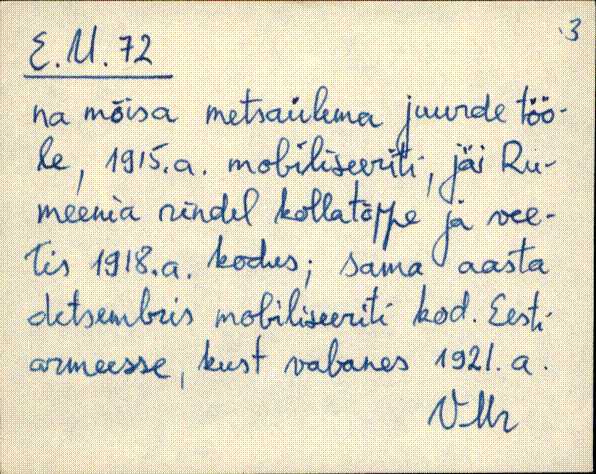 3
E.M. 72
na mõisa metsaülema juurde töö-
le, 1915.a. mobiliseeriti, jäi Ru-
meenia rindel kollatõppe ja vee-
tis 1918.a. kodus; sama aasta
detsembris mobiliseeriti kod. Eesti
armeesse, kust vabanes 1921. a.